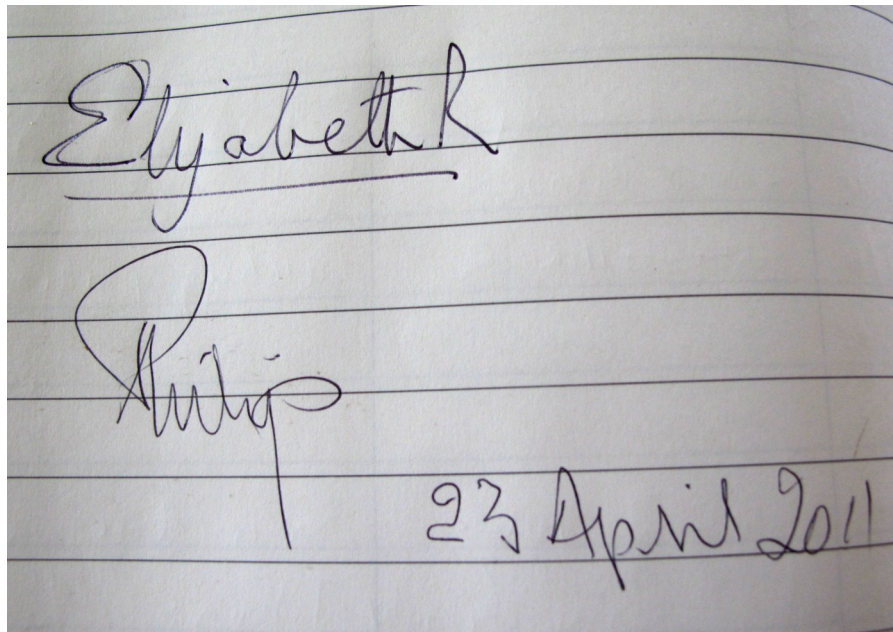 Elizabeth R
Philip
23 April 2011